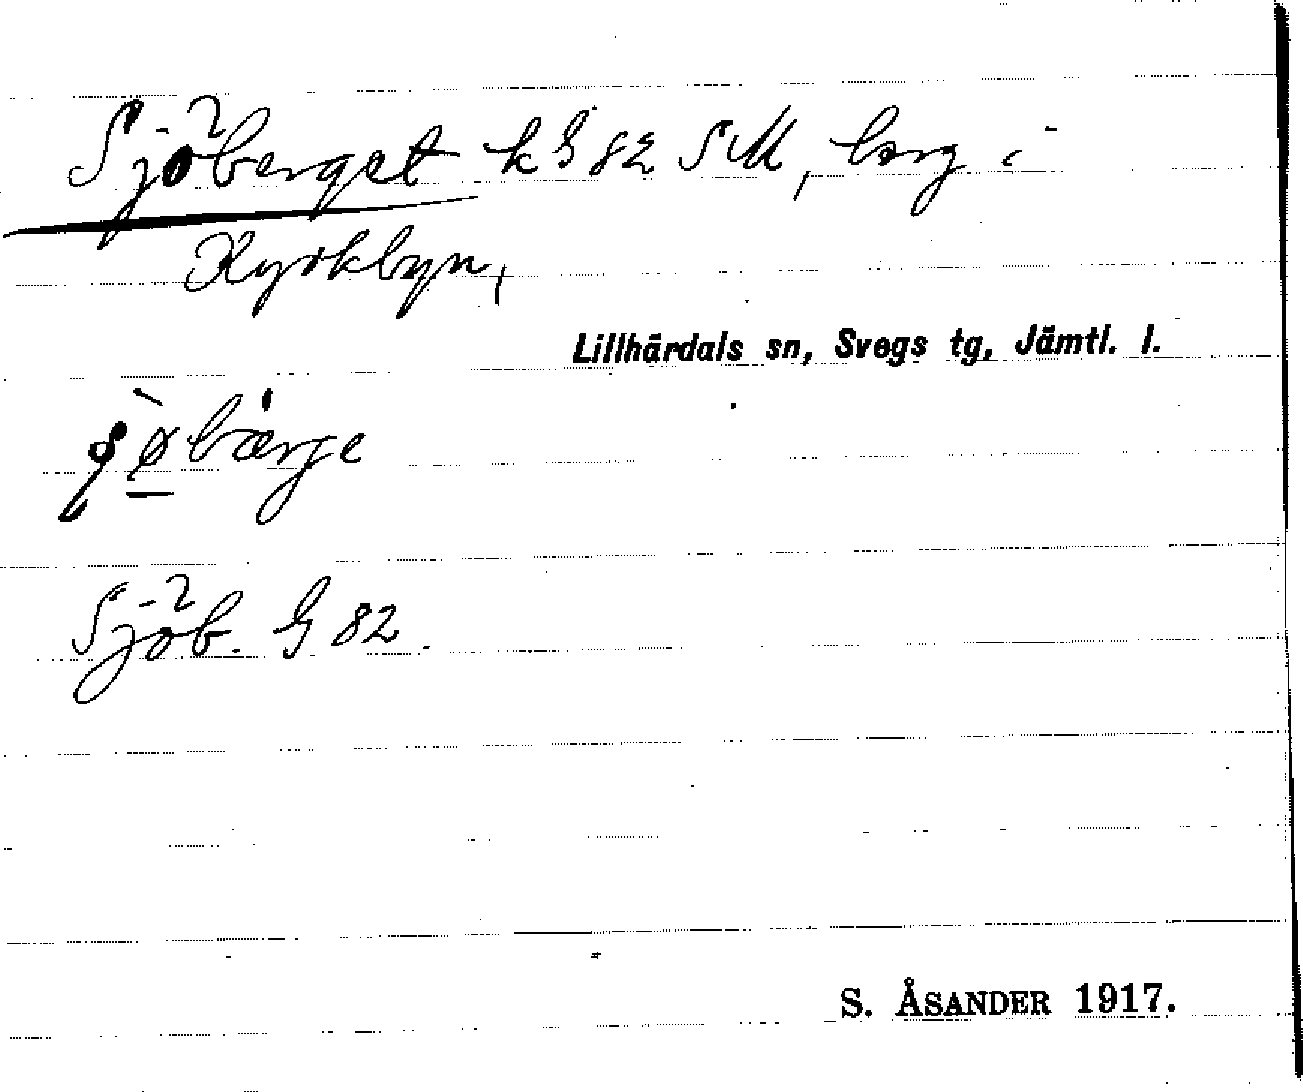 Sjöberget k G 82 SM, berg i
Kyrkbyn,
Lillhärdals sn, Svegs tg, Jämtl. l.
Sjöb. G 82.
S. ÅSANDER 1917.